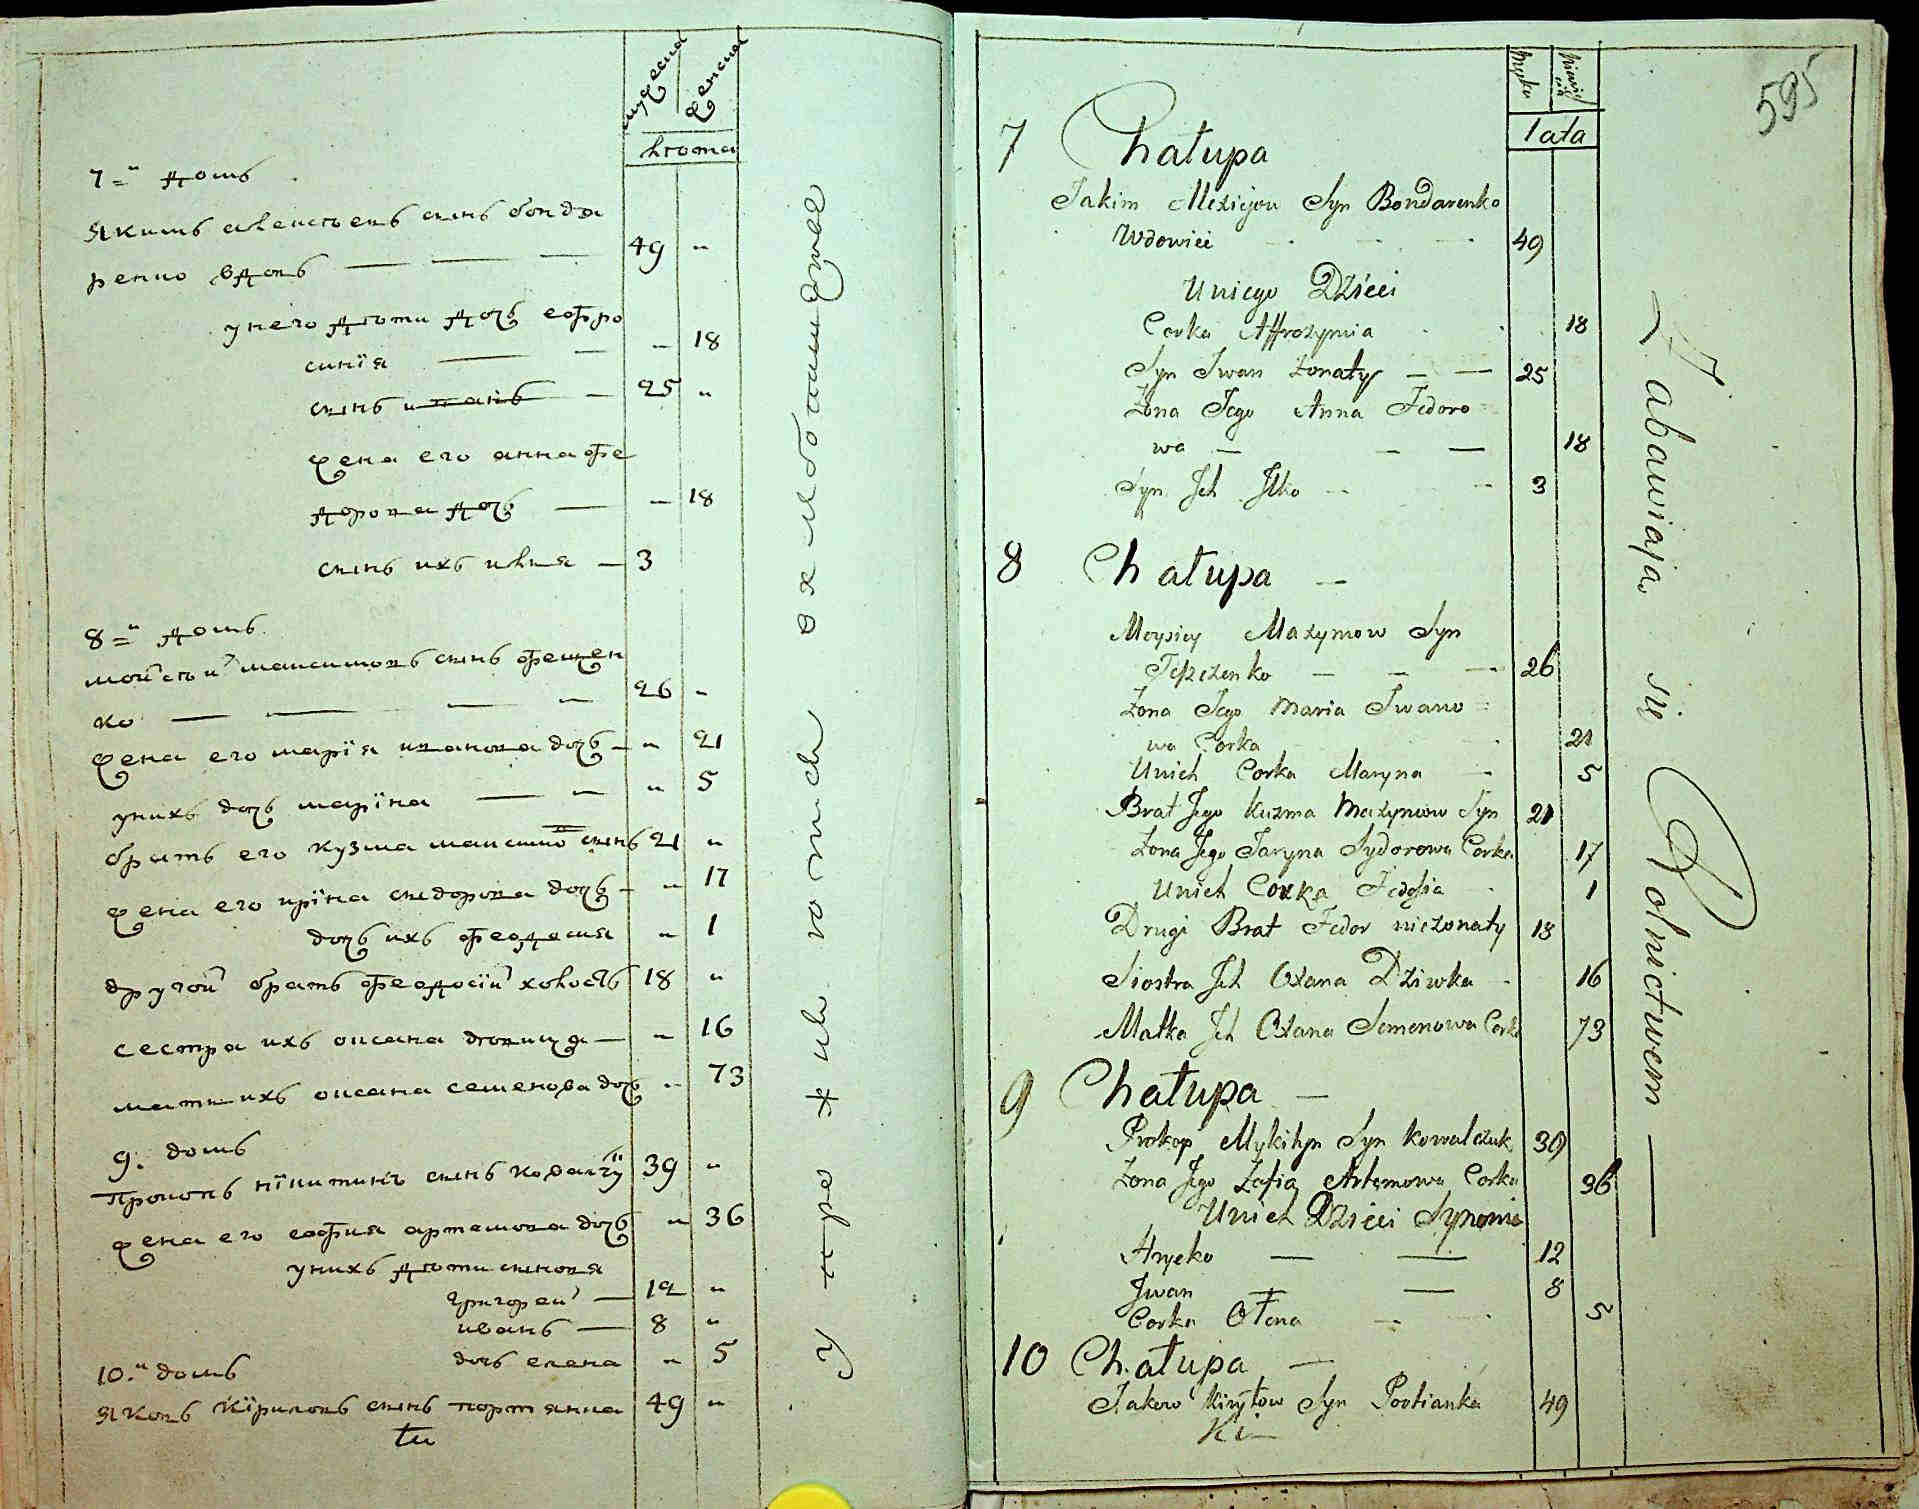 мужеска
женска
лѣта
7 й домъ
Якимъ Алексѣевъ сынъ бонда
ренко вдовъ — — — 49 "
у него дѣти дочь еѳро
синія — — 18
сынъ иванъ — 25 "
жена его анна фе
дорова дочь — — 18
сынъ ихъ илья — 3
8 й домъ
мойсѣй максимовъ сынъ фещен
ко — — — — 26 "
жена его марія иванова дочь — " 21
у нихъ дочь марина — — " 5
братъ его кузма максимо сынъ 21 "
жена его ирина сидорова дочь — " 17
дочь ихъ феодосия " 1
другой братъ феодосій холостъ 18 "
сестра ихъ оксана дѣвица — " 16
мать ихъ оксана семенова дочь " 73
9. домъ
Прокопъ никитинъ сынъ ковалчу 39 "
жена его софия артемова дочь " 36
у нихъ дѣти сыновя
григорей — 12 "
иванъ — 8 "
дочь елена " 5
10. й домъ
Яковъ Кириловъ сынъ портянка 49 "
595
Męska
lata
7 Chałupa
Jakim Alexiejow Syn Bondarenko
Wdowiec - - - 49
U niego Dzieci
Corka Affrozynia 18
Syn Iwan żonaty — — 25
Żona Jego Anna Fedoro
wa — — — 18
Syn Ich Ilko — — 3
8 Chałupa —
Moysiey Maxymow Syn
— — — 26
Żona Jego Maria Iwano
wa Corka 21
U nich Corka Maryna — 5
Brat Jego Kuzma Maxymow Syn 21
Żona Jego Jaryna Sydorowa Corka 17
U nich Corka Fedosia 1
Drugi Brat Fedor nieżonaty 18
Siostra Ich Oxana Dziwka 16
Matka Ich Oxana Semenowa Corka 73
9 Chałupa —
Prokop Mykityn Syn Kowalczuk 39
Żona Jego Zofia Artemowa Corka 36
U nich Dzieci Synowie
Hryćko — — 12
Iwan — — 8
Corka Ołena — 5
10 Chałupa —
Jakow Kiryłow Syn Portianka 49
Zabawiaja się Rolnictwem —